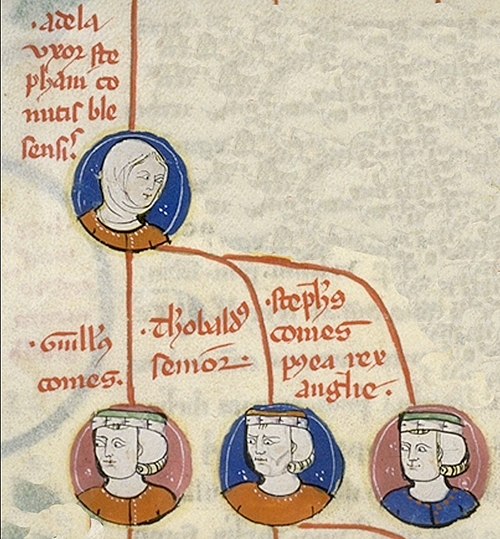 ·adela
uxor ste
phani co
mitis ble
sensis.
·Guill's
comes.
·thobald's
senior·
·steph's
comes
postea rex
anglie·